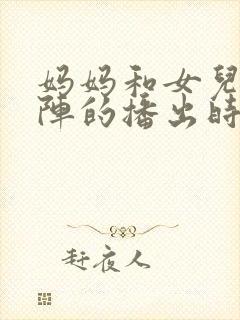 妈妈和女兒
陣的播出時
赶夜人